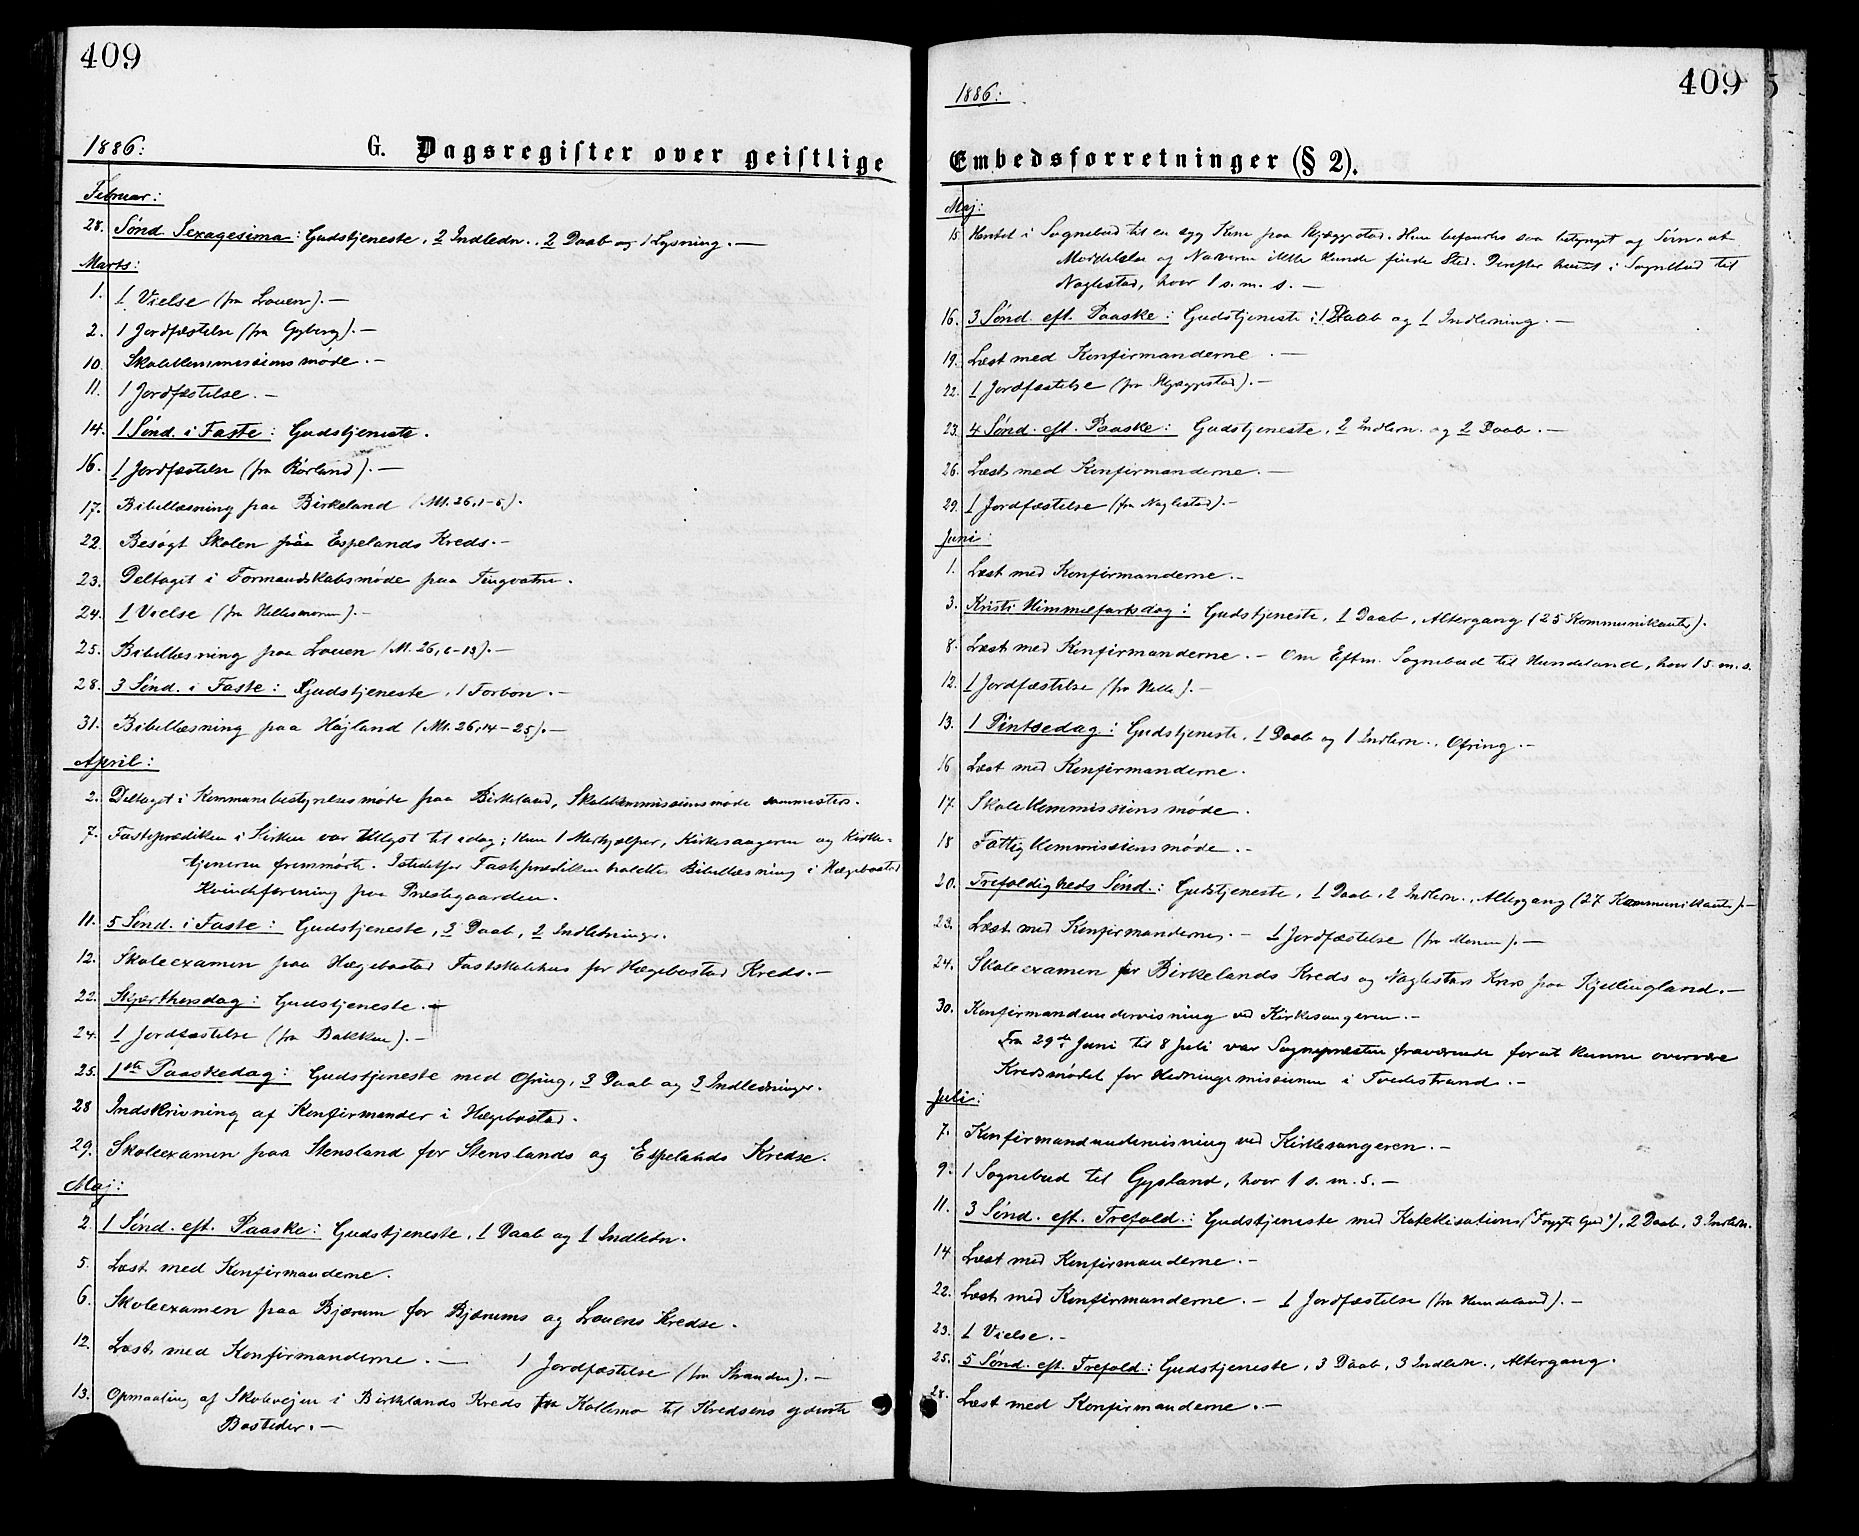 409
1886:
G. Dagsregister over geistlige
Februar:
28. Sønd. Sexagesima: Gudstjeneste, 2 Indledn., 2 Daab og 1 Lysning. —
Marts:
1. 1 Vielse (fra Louen). —
2. 1 Jordfæstelse (fra Gyberg). —
10. Skolekommissionsmøde. —
11. 1 Jordfæstelse. —
14. 1 Sønd. i Faste: Gudstjeneste.
16. 1 Jordfæstelse (fra Rørland). —
17. Bibellæsning paa Birkeland (Mt. 26, 1-5).
22. Besøgt Skolen paa Espelands Kreds. —
23. Deltaget i Formandskabsmøde paa Tingvatn.
24. 1 Vielse (fra Hellemoen). —
25. Bibellæsning paa Louen (Mt. 26, 6-13). —
28. 3 Sønd. i Faste: Gudstjeneste, 1 Forbøn. —
31. Bibellæsning paa Højland (Mt. 26, 14-25). —
April:
2. Deltaget i Kommunebestyrelsesmøde paa Birkeland, Skolekommissionsmøde sammesteds.
7. Fasteprædiken i Kirken var tillyst til idag; kun 1 Medhjælper, Kirkesangeren og Kirke-
tjeneren fremmødte. Istedetfor Fasteprædiken holdtes Bibellæsning i Hægebostad
Kvindeforening paa Præstegaarden.
11. 5 Sønd. i Faste: Gudstjeneste, 3 Daab, 2 Indledninger.
12. Skoleexamen paa Hægebostad Fastskolehus for Hægebostad Kreds. —
22. Skjærthorsdag: Gudstjeneste. —
24. 1 Jordfæstelse (fra Bakken). —
25. 1ste Paaskedag: Gudstjeneste med Ofring, 3 Daab og 3 Indledninger.
28 Indskrivning af Konfirmander i Hægebostad.
29. Skoleexamen paa Stensland for Stenslands og Espelands Kredse.
Maj:
2. 1 Sønd. eft. Paaske: Gudstjeneste, 1 Daab og 1 Indledn.
5. Læst med Konfirmanderne.
6. Skoleexamen paa Bjærum for Bjærums og Louens Kredse.
12. Læst med Konfirmanderne. — 1 Jordfæstelse (fra Stranden). —
13. Opmaaling af Skolevejen i Birkelands Kreds fra Kollemo til Kredsens yderste
Bosteder. —
409
1886:
Embedsforretninger (§ 2).
Maj:
15. Hentet i Sognebud til en syg Kone paa Skjæggestad. Hun befandtes saa betynget og Sørn. at
Meddelelse og Nadveren ikke kunde finde Sted. Derefter hentet i Sognebud til
Naglestad, hvor 1 s. m. s. —
16. 3 Sønd. eft. Paaske: Gudstjeneste, 1 Daab og 1 Indledning. —
19. Læst med Konfirmanderne. —
22. 1 Jordfæstelse (fra Skjæggestad). —
23. 4 Sønd. eft. Paaske: Gudstjeneste, 2 Indledn. og 2 Daab. —
26. Læst med Konfirmanderne. —
29. 1 Jordfæstelse (fra Naglestad). —
Juni:
1. Læst med Konfirmanderne. —
3. Kristi Himmelfartsdag: Gudstjeneste, 1 Daab, Altergang (25 Kommunikanter).
8. Læst med Konfirmanderne. — Om Eftm. Sognebud til Hundeland, hvor 1 s. m. s.
12. 1 Jordfæstelse (fra Helle). —
13. 1 Pintsedag: Gudstjeneste, 1 Daab og 1 Indledn., Ofring. —
16 Læst med Konfirmanderne.
17. Skolekommissionsmøde.
18 Fattigkommissionsmøde. —
20. Trefoldigheds Sønd.: Gudstjeneste, 1 Daab, 2 Indledn., Altergang (27 Kommunikanter). —
23. Læst med Konfirmanderne. — 1 Jordfæstelse (fra Monen). —
24. Skoleexamen for Birkelands Kreds og Naglestads Kreds paa Kjellingland. —
30. Konfirmandundervisning ved Kirkesangeren. —
Fra 29de Juni til 8 Juli var Sognepræsten fraværende for at kunne overvære
Kredsmødet for Hedningemissionen i Tvedestrand. —
Juli:
7. Konfirmandundervisning ved Kirkesangeren. —
9. 1 Sognebud til Gysland, hvor 1 s. m. s. —
11. 3 Sønd. eft. Trefold.: Gudstjeneste med Katekisation ("Frygte Gud"), 2 Daab, 3 Indledn.
14 Læst med Konfirmanderne. —
22. Læst med Konfirmanderne. — 1 Jordfæstelse (fra Hundeland). —
23. 1 Vielse. —
25. 5 Sønd. eft. Trefold: Gudstjeneste, 3 Daab, 3 Indledn., Altergang.
28. Læst med Konfirmanderne. —
409